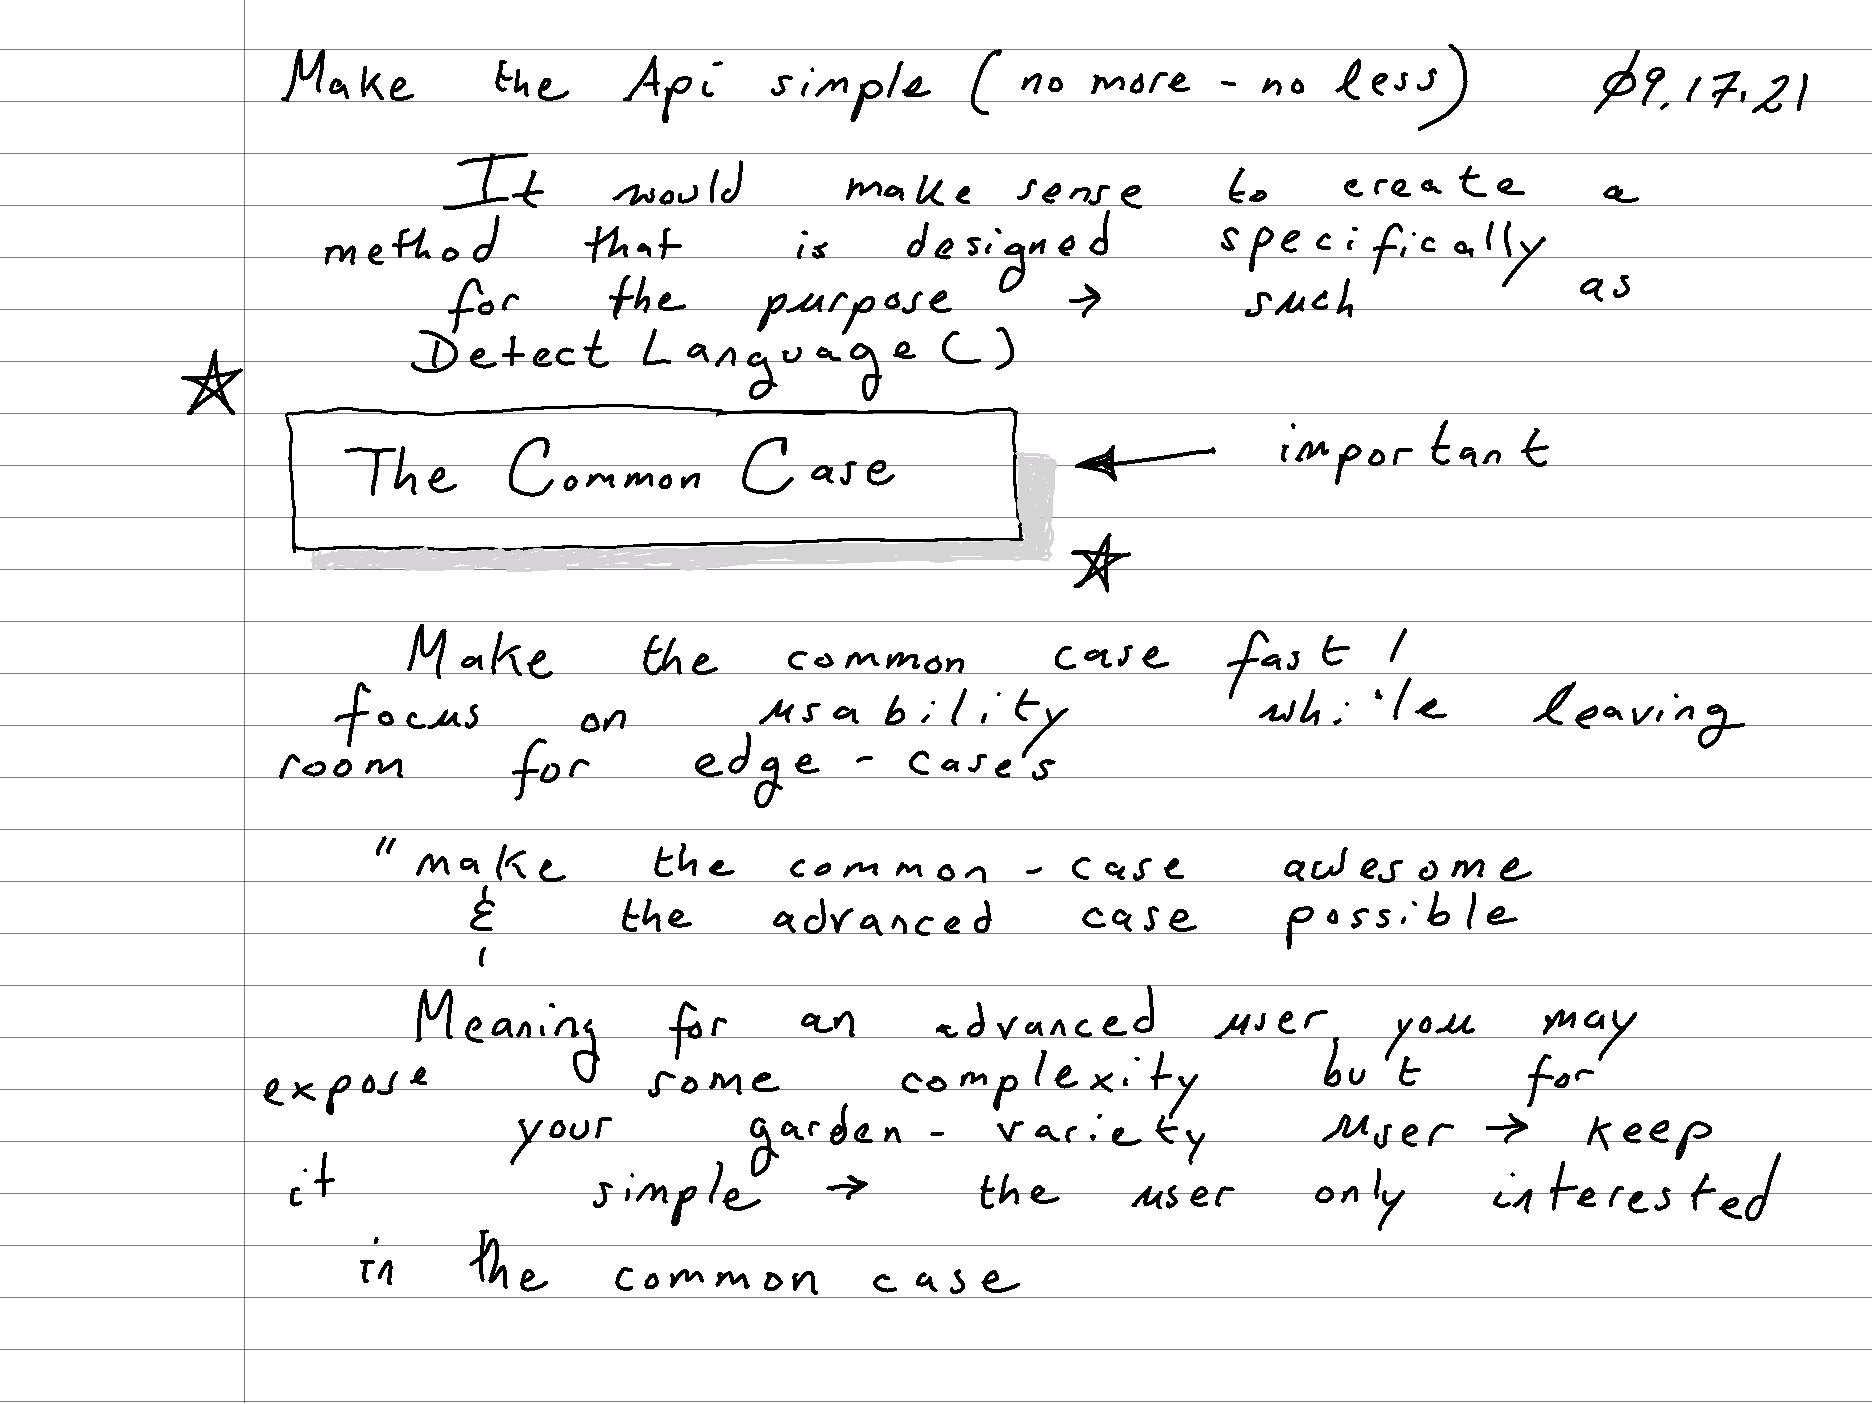 Make the Api simple (no more - no less) 09.17.21
It would make sense to create a
method that is designed specifically
for the purpose → such as
Detect Language ( )
The Common Case ← important
Make the common case fast /
focus on usability while leaving
room for edge - case's
"make the common - case awesome
& the advanced case possible
Meaning for an advanced user, you may
expose some complexity but for
your garden - variety user → keep
it simple → the user only interested
in the common case